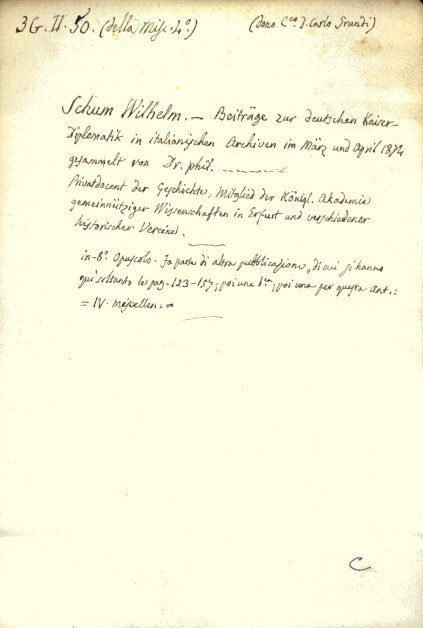 3G.II.50. (della Misc. 4°.) (Dono C.te J. Carlo Grandi)
Schum Wilhelm. — Beiträge zur deutschen Kaiser-
Diplomatik in italianischen Archiven im März und April 1874
gesammelt von Dr. phil.
Privatdocent der Geschichte, Mitglied der Königl. Akademie
gemeinnütziger Wissenschaften in Erfurt und verschiedener
historischer Vereine.
in-8°. Opuscolo. Fa parte di altra pubblicazione, di cui si hanno
qui soltanto le pag. 123-157; poi una b.ca; poi una per questa ant.:
= IV. Miscellen. =
C